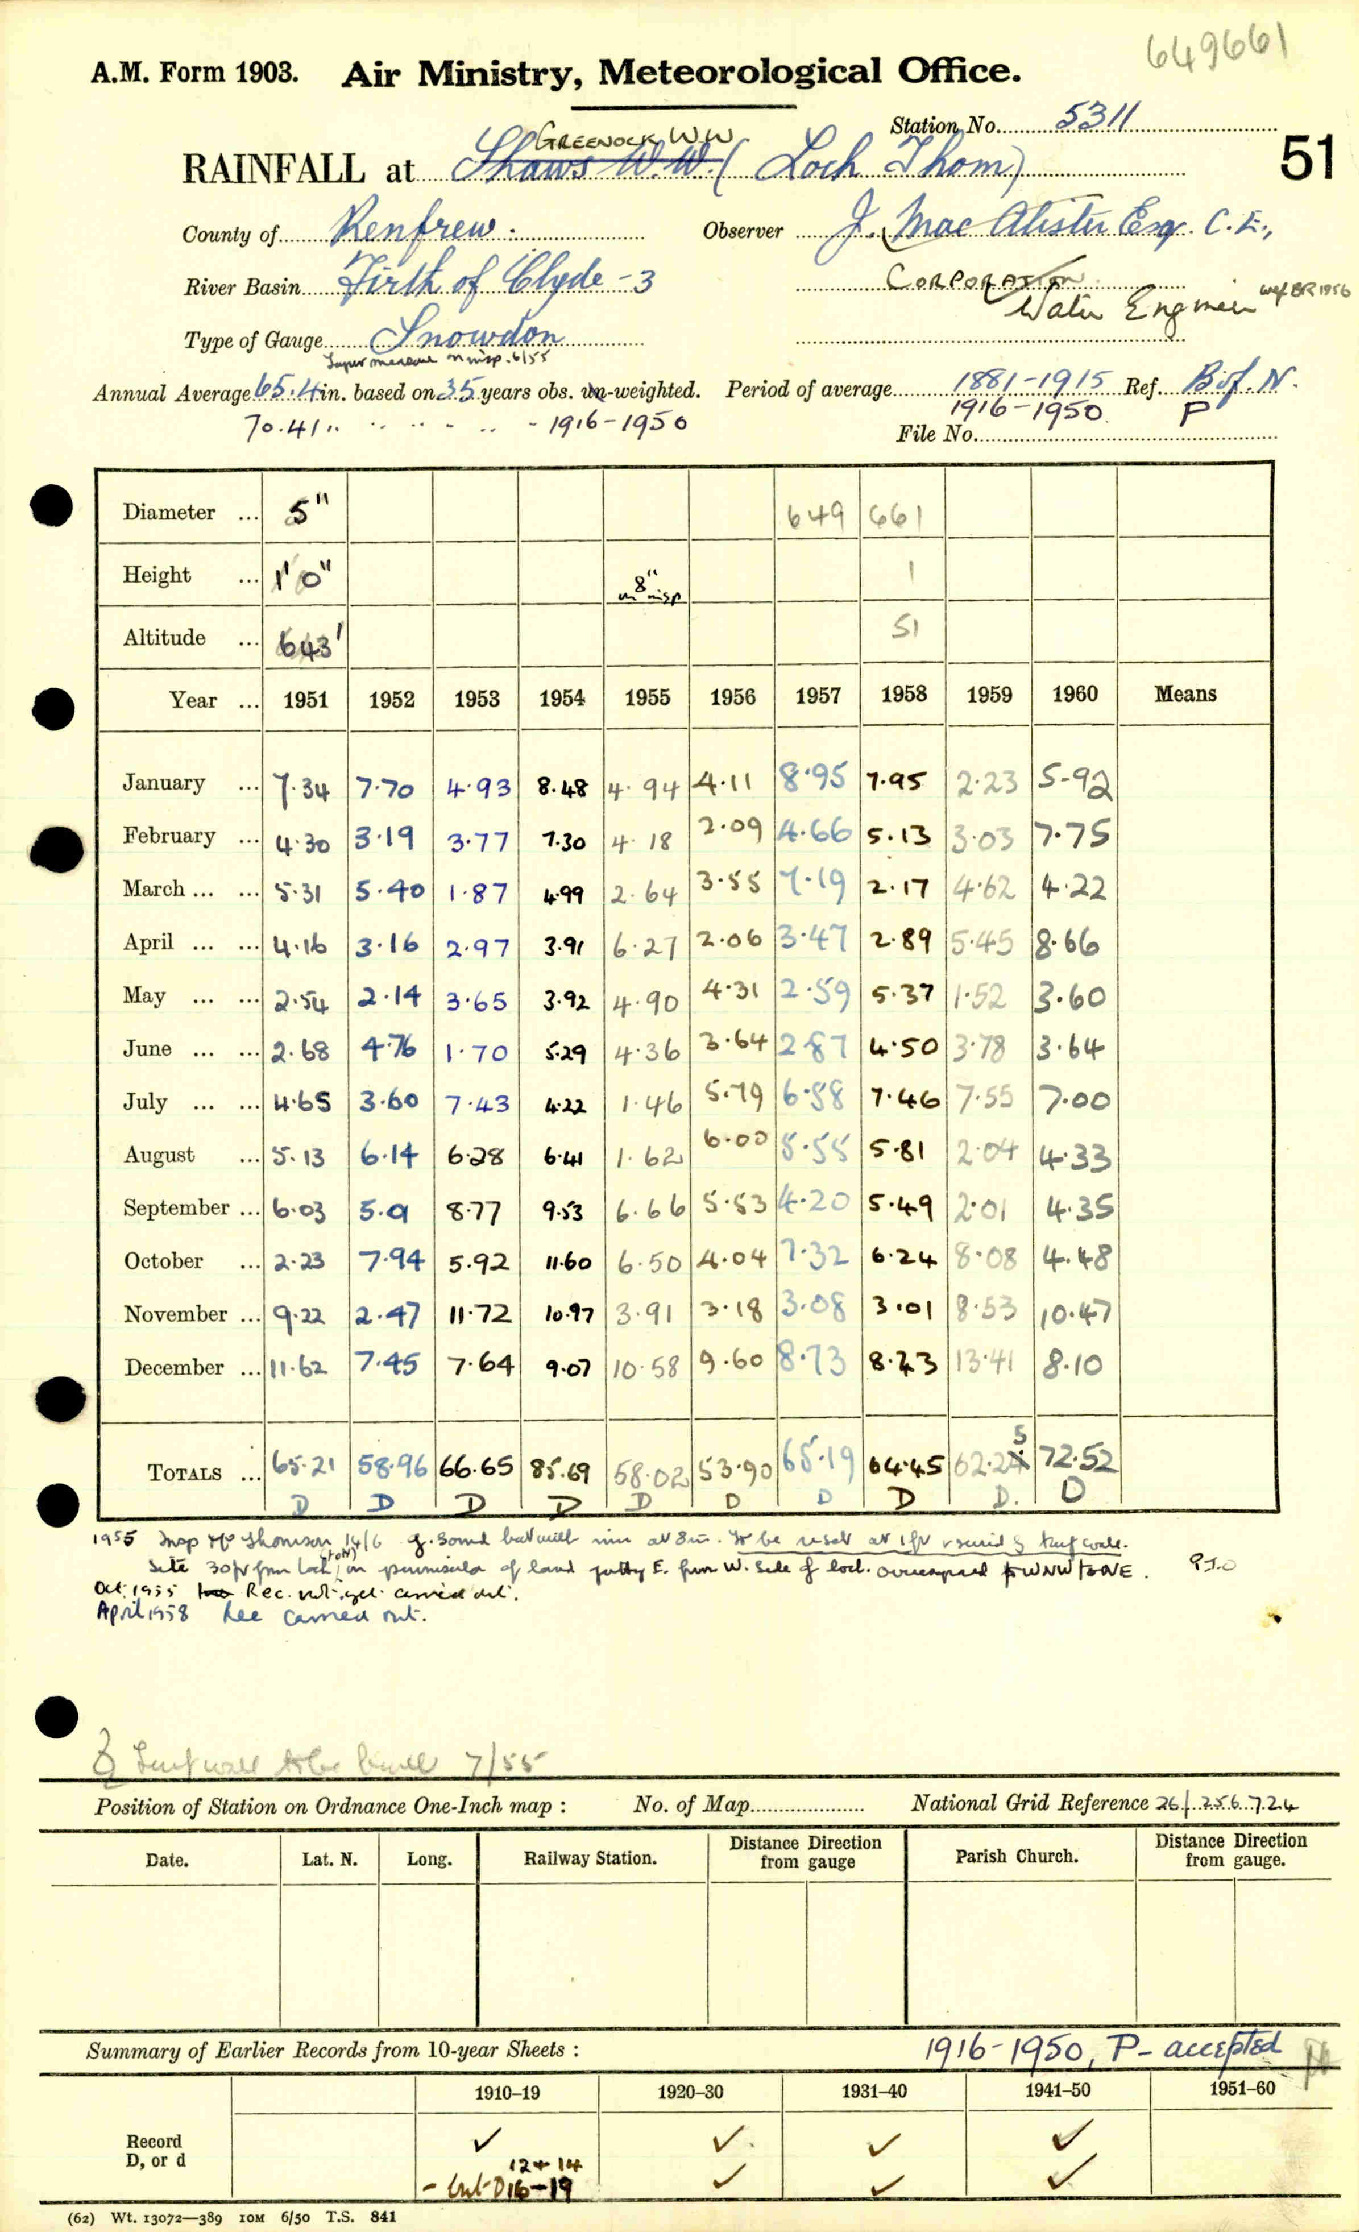 649661
A.M. Form 1903. Air Ministry, Meteorological Office.
Station No. 5311
GREENOCK WW
RAINFALL at Shaws W.W. ( Loch Thom)
51
County of Renfrew. Observer J. Mac Alister Esq. C.E.,
River Basin Firth of Clyde - 3 CORPORATION
Water Engineer
Type of Gauge Snowdon
on insp. 6/55
Annual Average 65.4 in. based on 35 years obs. un-weighted. Period of average 1881-1915 Ref. B. of. N.
70.41 " " " - " - 1916-1950 1916-1950. P
File No.
Diameter ... 5" 649 661
Height ... 1' 0" 8" on insp 1
Altitude ... 643' 51
Year ... 1951 1952 1953 1954 1955 1956 1957 1958 1959 1960 Means
January ... 7.34 7.70 4.93 8.48 4.94 4.11 8.95 7.95 2.23 5.92
February ... 4.30 3.19 3.77 7.30 4.18 2.09 4.66 5.13 3.03 7.75
March ... ... 5.31 5.40 1.87 4.99 2.64 3.55 7.19 2.17 4.62 4.22
April ... ... 4.16 3.16 2.97 3.91 6.27 2.06 3.47 2.89 5.45 8.66
May ... ... 2.54 2.14 3.65 3.92 4.90 4.31 2.59 5.37 1.52 3.60
June ... ... 2.68 4.76 1.70 5.29 4.36 3.64 2.87 4.50 3.78 3.64
July ... ... 4.65 3.60 7.43 4.22 1.46 5.79 6.58 7.46 7.55 7.00
August ... 5.13 6.14 6.28 6.41 1.62 6.00 5.55 5.81 2.04 4.33
September ... 6.03 5.01 8.77 9.53 6.66 5.53 4.20 5.49 2.01 4.35
October ... 2.23 7.94 5.92 11.60 6.50 4.04 7.32 6.24 8.08 4.48
November ... 9.22 2.47 11.72 10.97 3.91 3.18 3.08 3.01 8.53 10.47
December ... 11.62 7.45 7.64 9.07 10.58 9.60 8.73 8.43 13.41 8.10
TOTALS ... 65.21 58.96 66.65 85.69 58.02 53.90 65.19 64.45 62.25 72.52
D D D D D D D D D. D
1955 Insp Mr Thomson 14/6 g. sound but with rim at 8in. To be reset at 1ft & turf wall.
Site 30ft from loch on peninsula of land jutting E. from W. side of loch. overexposed P.T.O
Oct. 1955 Rec. not yet carried out.
April 1958 Rec carried out.
Turf wall to be built 7/55
Position of Station on Ordnance One-Inch map : No. of Map National Grid Reference 26/256.724
Date. Lat. N. Long. Railway Station. Distance Direction from gauge Parish Church. Distance Direction from gauge.
Summary of Earlier Records from 10-year Sheets : 1916-1950, P- accepted
1910–19 1920–30 1931–40 1941–50 1951–60
Record ✓ ✓ ✓ ✓
D, or d 12+14 ✓ ✓ ✓
16-19
(62) Wt. 13072—389 10M 6/50 T.S. 841